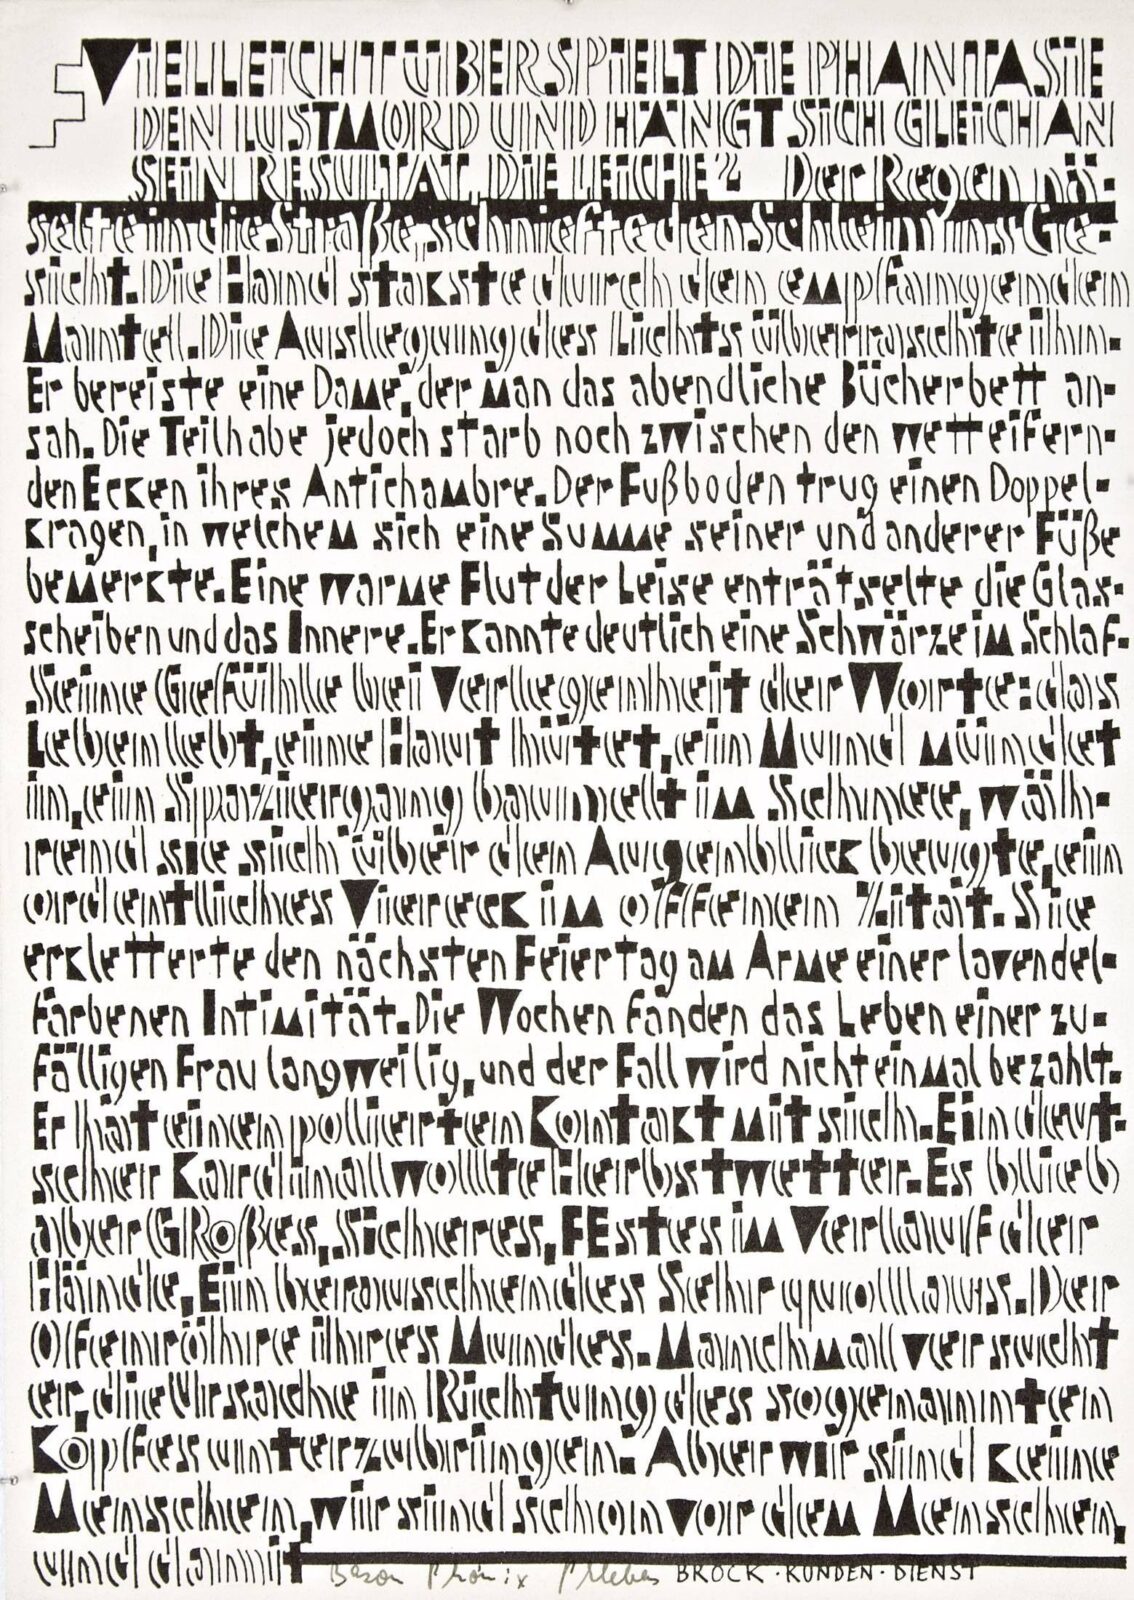 VIELLEICHT ÜBERSPIELT DIE PHANTASIE
DEN LUSTMORD UND HÄNGT SICH GLEICH AN
SEIN RESULTAT, DIE LEICHE? Der Regen nä-
selte in die Straße, schniefte den Schleim ins Ge-
sicht. Die Hand stakste durch den empfangenden
Mantel. Die Auslegung des Lichts überraschte ihn.
Er bereiste eine Dame, der man das abendliche Bücherbett an-
sah. Die Teilhabe jedoch starb noch zwischen den wetteifern-
den Ecken ihres Antichambre. Der Fußboden trug einen Doppel-
kragen, in welchem sich eine Summe seiner und anderer Füße
bemerkte. Eine warme Flut der Leise enträtselte die Glas-
scheiben und das Innere. Er kannte deutlich eine Schwärze im Schlaf.
Seine Gefühle bei Verlegenheit der Worte: das
Leben lebt, eine Haut hütet, ein Mund mündet
in, ein Spaziergang baumelt im Schnee, wäh-
rend sie sich über den Augenblick beugte, ein
ordentliches Viereck im offenen Zitat. Sie
erkletterte den nächsten Feiertag am Arme einer lavendel-
farbenen Intimität. Die Wochen fanden das Leben einer zu-
fälligen Frau langweilig, und der Fall wird nicht einmal bezahlt.
Er hat einen polierten Kontakt mit sich. Ein deut-
scher Kardinal wollte Herbstwetter. Es blieb
aber GRoßes, Sicheres, FEstes im Verlauf der
Hände. Ein berauschendes Sehr quoll aus. Der
Ofenröhre ihres Mundes. Manchmal versucht
er, die Ursache in Richtung des sogenannten
Kopfes unterzubringen. Aber wir sind keine
Menschen, wir sind schon vor dem Menschen,
und damit
Bazon Phönix Phlebas BROCK · KUNDEN · DIENST